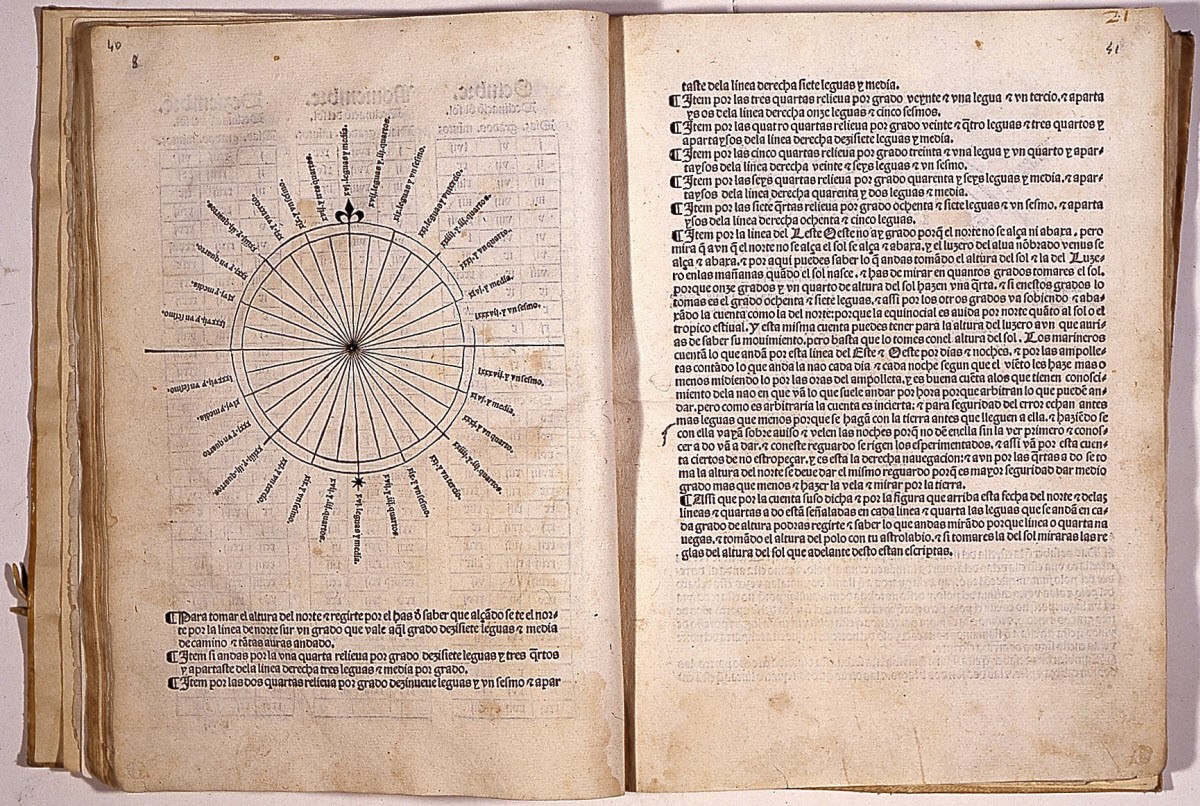 40
8
xvij. leguas y media.
xvij. leguas y .iij. quartos.
xix. leguas y vn sesmo.
xxj. leguas y vn tercio.
xxiiij. y .iij. quartos.
xxxj. y vn quarto.
xlvj. y media.
lxxxvij. y vn sesmo.
lxxxvij. y vn sesmo.
xlvj. y media.
xxxj. y vn quarto.
xxiiij. y .iij. quartos.
xxj. y vn tercio.
xix. y vn sesmo.
xvij. y .iij. quartos.
xvij. leguas y media.
xvij. y .iij. quartos.
xix. y vn sesmo.
xxj. y vn tercio.
xxiiij. y .iij. quartos.
xxxj. y vn quarto
xlvj. y media.
lxxxvij. y vn sesmo.
lxxxvij. y vn sesmo.
xlvj. y media.
xxxj. y vn quarto.
xxiiij. y .iij. quartos.
xxj. y vn tercio.
xix. y vn sesmo.
¶ Para tomar el altura del norte ⁊ regirte por el has d̓ saber que alçãdo se te el nor-
te por la linea de norte sur vn grado que vale aq̃l grado dezisiete leguas ⁊ media
de camino ⁊ tãtas auras andado.
¶ Item si andas por la vna quarta relieua por grado dezisiete leguas y tres q̃rtos
y apartaste dela linea derecha tres leguas ⁊ media por grado.
¶ Item por las dos quartas relieua por grado dezinueue leguas y vn sesmo ⁊ apar
21
41
taste dela linea derecha siete leguas y media.
¶ Item por las tres quartas relieua por grado veynte ⁊ vna legua ⁊ vn tercio. ⁊ aparta
ysos dela linea derecha onze leguas ⁊ cinco sesmos.
¶ Item por las quatro quartas relieua por grado veinte ⁊ q̃tro leguas ⁊ tres quartos y
apartaysos dela linea derecha dezisiete leguas y media.
¶ Item por las cinco quartas relieua por grado treinta ⁊ vna legua y vn quarto y apar-
taysos dela linea derecha veinte ⁊ seys leguas y vn sesmo.
¶ Item por las seys quartas relieua por grado quarenta y seys leguas y media. ⁊ apar-
taysos dela linea derecha quarenta y dos leguas ⁊ media.
¶ Item por las siete q̃rtas relieua por grado ochenta ⁊ siete leguas y vn sesmo. ⁊ aparta
ysos dela linea derecha ochenta ⁊ cinco leguas.
¶ Item por la linea del Leste Oeste no ay grado porq̃ el norte no se alça ni abaxa. pero
mira q̃ avn q̃ el norte no se alça el sol se alça ⁊ abaxa. y el luzero del alua nõbrado venus se
alça ⁊ abaxa. ⁊ por aqui puedes saber lo q̃ andas tomãdo el altura del sol ⁊ la del Luze-
ro enlas mañanas quãdo el sol nasce. ⁊ has de mirar en quantos grados tomares el sol.
porque onze grados y vn quarto de altura del sol hazen vna q̃rta. ⁊ si enestos grados lo
tomas es el grado ochenta ⁊ siete leguas. ⁊ assi por los otros grados va sobiendo ⁊ aba-
xãdo la cuenta como la del norte: porque la equinocial es auida por norte quãto al sol o el
tropico estiual. y esta misma cuenta puedes tener para la altura del luzero avn que auri-
as de saber su mouimiento. pero basta que lo tomes conel altura del sol. Los marineros
cuentã lo que andã por esta linea del Este ⁊ Oeste por dias ⁊ noches. ⁊ por las ampolle-
tas contãdo lo que anda la nao cada dia ⁊ cada noche segun que el viẽto les haze mas o
menos midiendo lo por las oras del ampolleta. y es buena cuẽta alos que tienen conosci-
miento dela nao en que vã lo que suele andar por hora porque arbitran lo que puedẽ an-
dar. pero como es arbitraria la cuenta es incierta: ⁊ para seguridad del error echan antes
mas leguas que menos porque se hagã con la tierra antes que lleguen a ella. ⁊ haziẽdo se
con ella vayã sobre auiso ⁊ velen las noches porq̃ no dẽ enella sin la ver primero ⁊ conos-
cer a do vã a dar. ⁊ coneste reguardo se rigen los esperimentados. ⁊ assi vã por esta cuen-
ta ciertos de no estropeçar. y es esta la derecha nauegacion: ⁊ avn por las q̃rtas a do se to
ma la altura del norte se deue dar el mismo reguardo porq̃ es mayor seguridad dar medio
grado mas que menos ⁊ hazer la vela ⁊ mirar por la tierra.
¶ Assi que por la cuenta suso dicha ⁊ por la figura que arriba esta fecha del norte ⁊ delas
lineas ⁊ quartas a do estã señaladas en cada linea ⁊ quarta las leguas que se andã en ca-
da grado de altura podras regirte ⁊ saber lo que andas mirãdo porque linea o quarta na
uegas. ⁊ tomãdo el altura del polo con tu astrolabio. ⁊ si tomares la del sol miraras las re
glas del altura del sol que adelante desto estan escriptas.